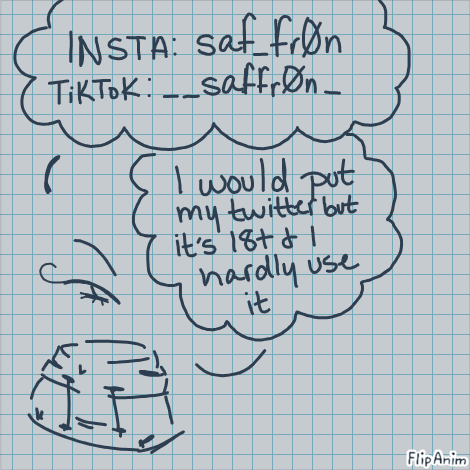 INSTA: saf_fr0n
TiKToK: __saffr0n_
I would put
my twitter but
it's 18+ & I
hardly use
it
FlipAnim